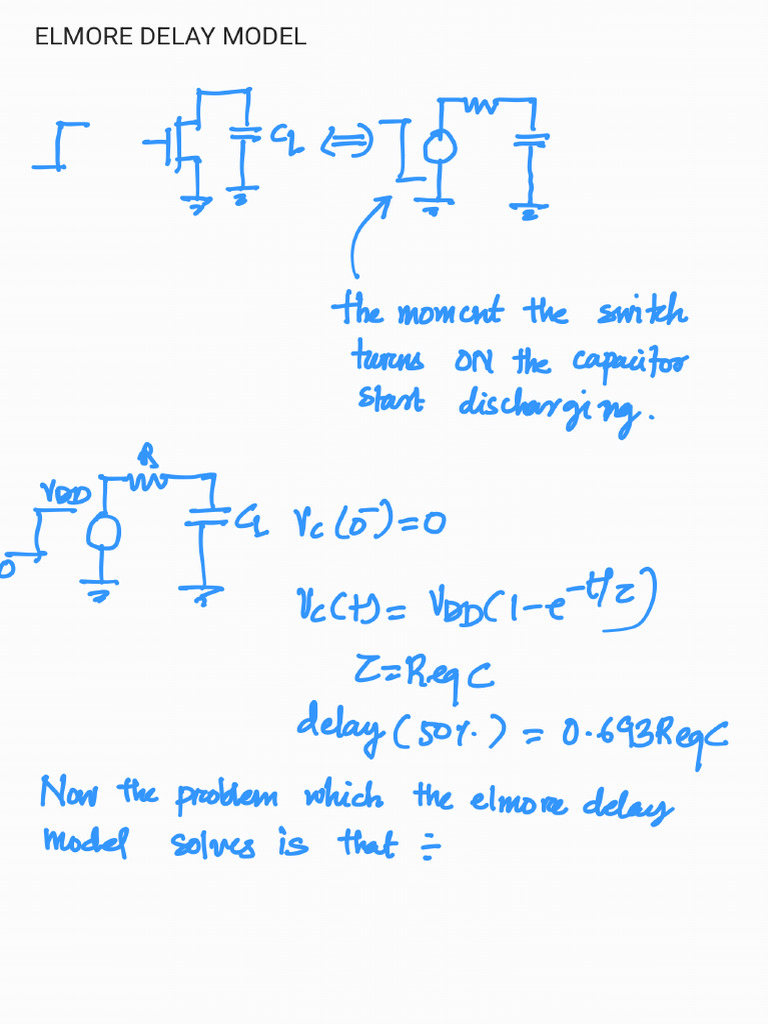 ELMORE DELAY MODEL
CL
the moment the switch
turns ON the capacitor
start discharging.
R
VDD
0
CL
Vc(0⁻)=0
Vc(t)= VDD(1-e^-t/τ)
τ=ReqC
delay (50%) = 0.693ReqC
Now the problem which the elmore delay
model solves is that ÷